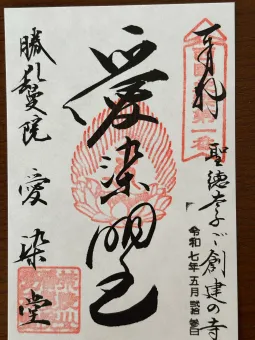 奉拝
聖徳太子ご創建の寺
令和七年五月
愛染明王
勝鬘院 愛染堂